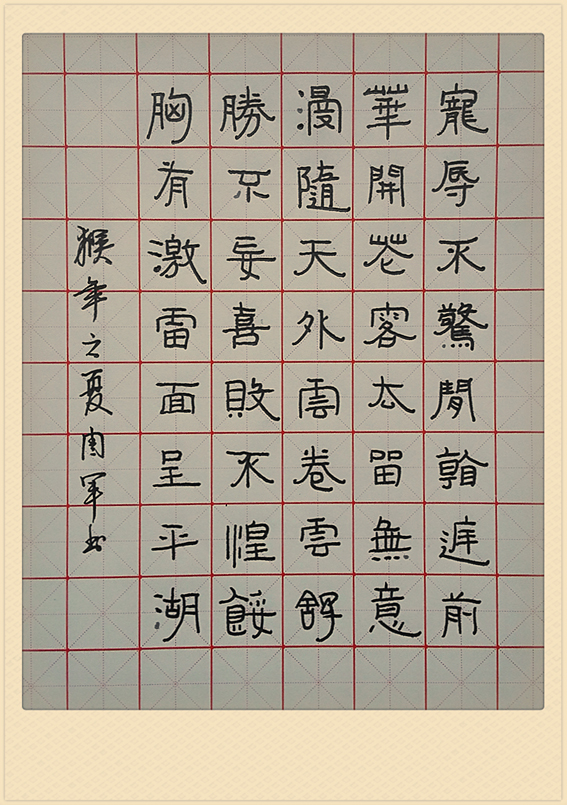 寵辱不驚閒看庭前
華開花客去留無意
漫隨天外雲卷雲舒
勝不妄喜敗不惶餒
胸有激雷面呈平湖
猴年之夏周军书